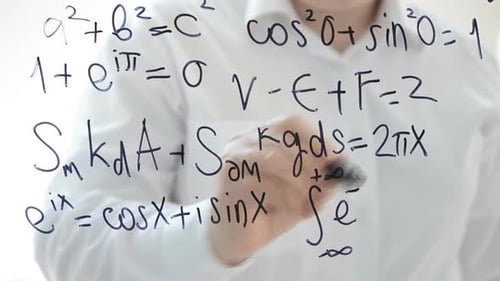 a² + b² = c²
cos²0 + sin²0 = 1
1 + e^iπ = 0
V - E + F = 2
S_m k d A + S_∂M kg ds = 2πX
e^ix = cosx + i sinx
∫_-∞^+∞ e^-